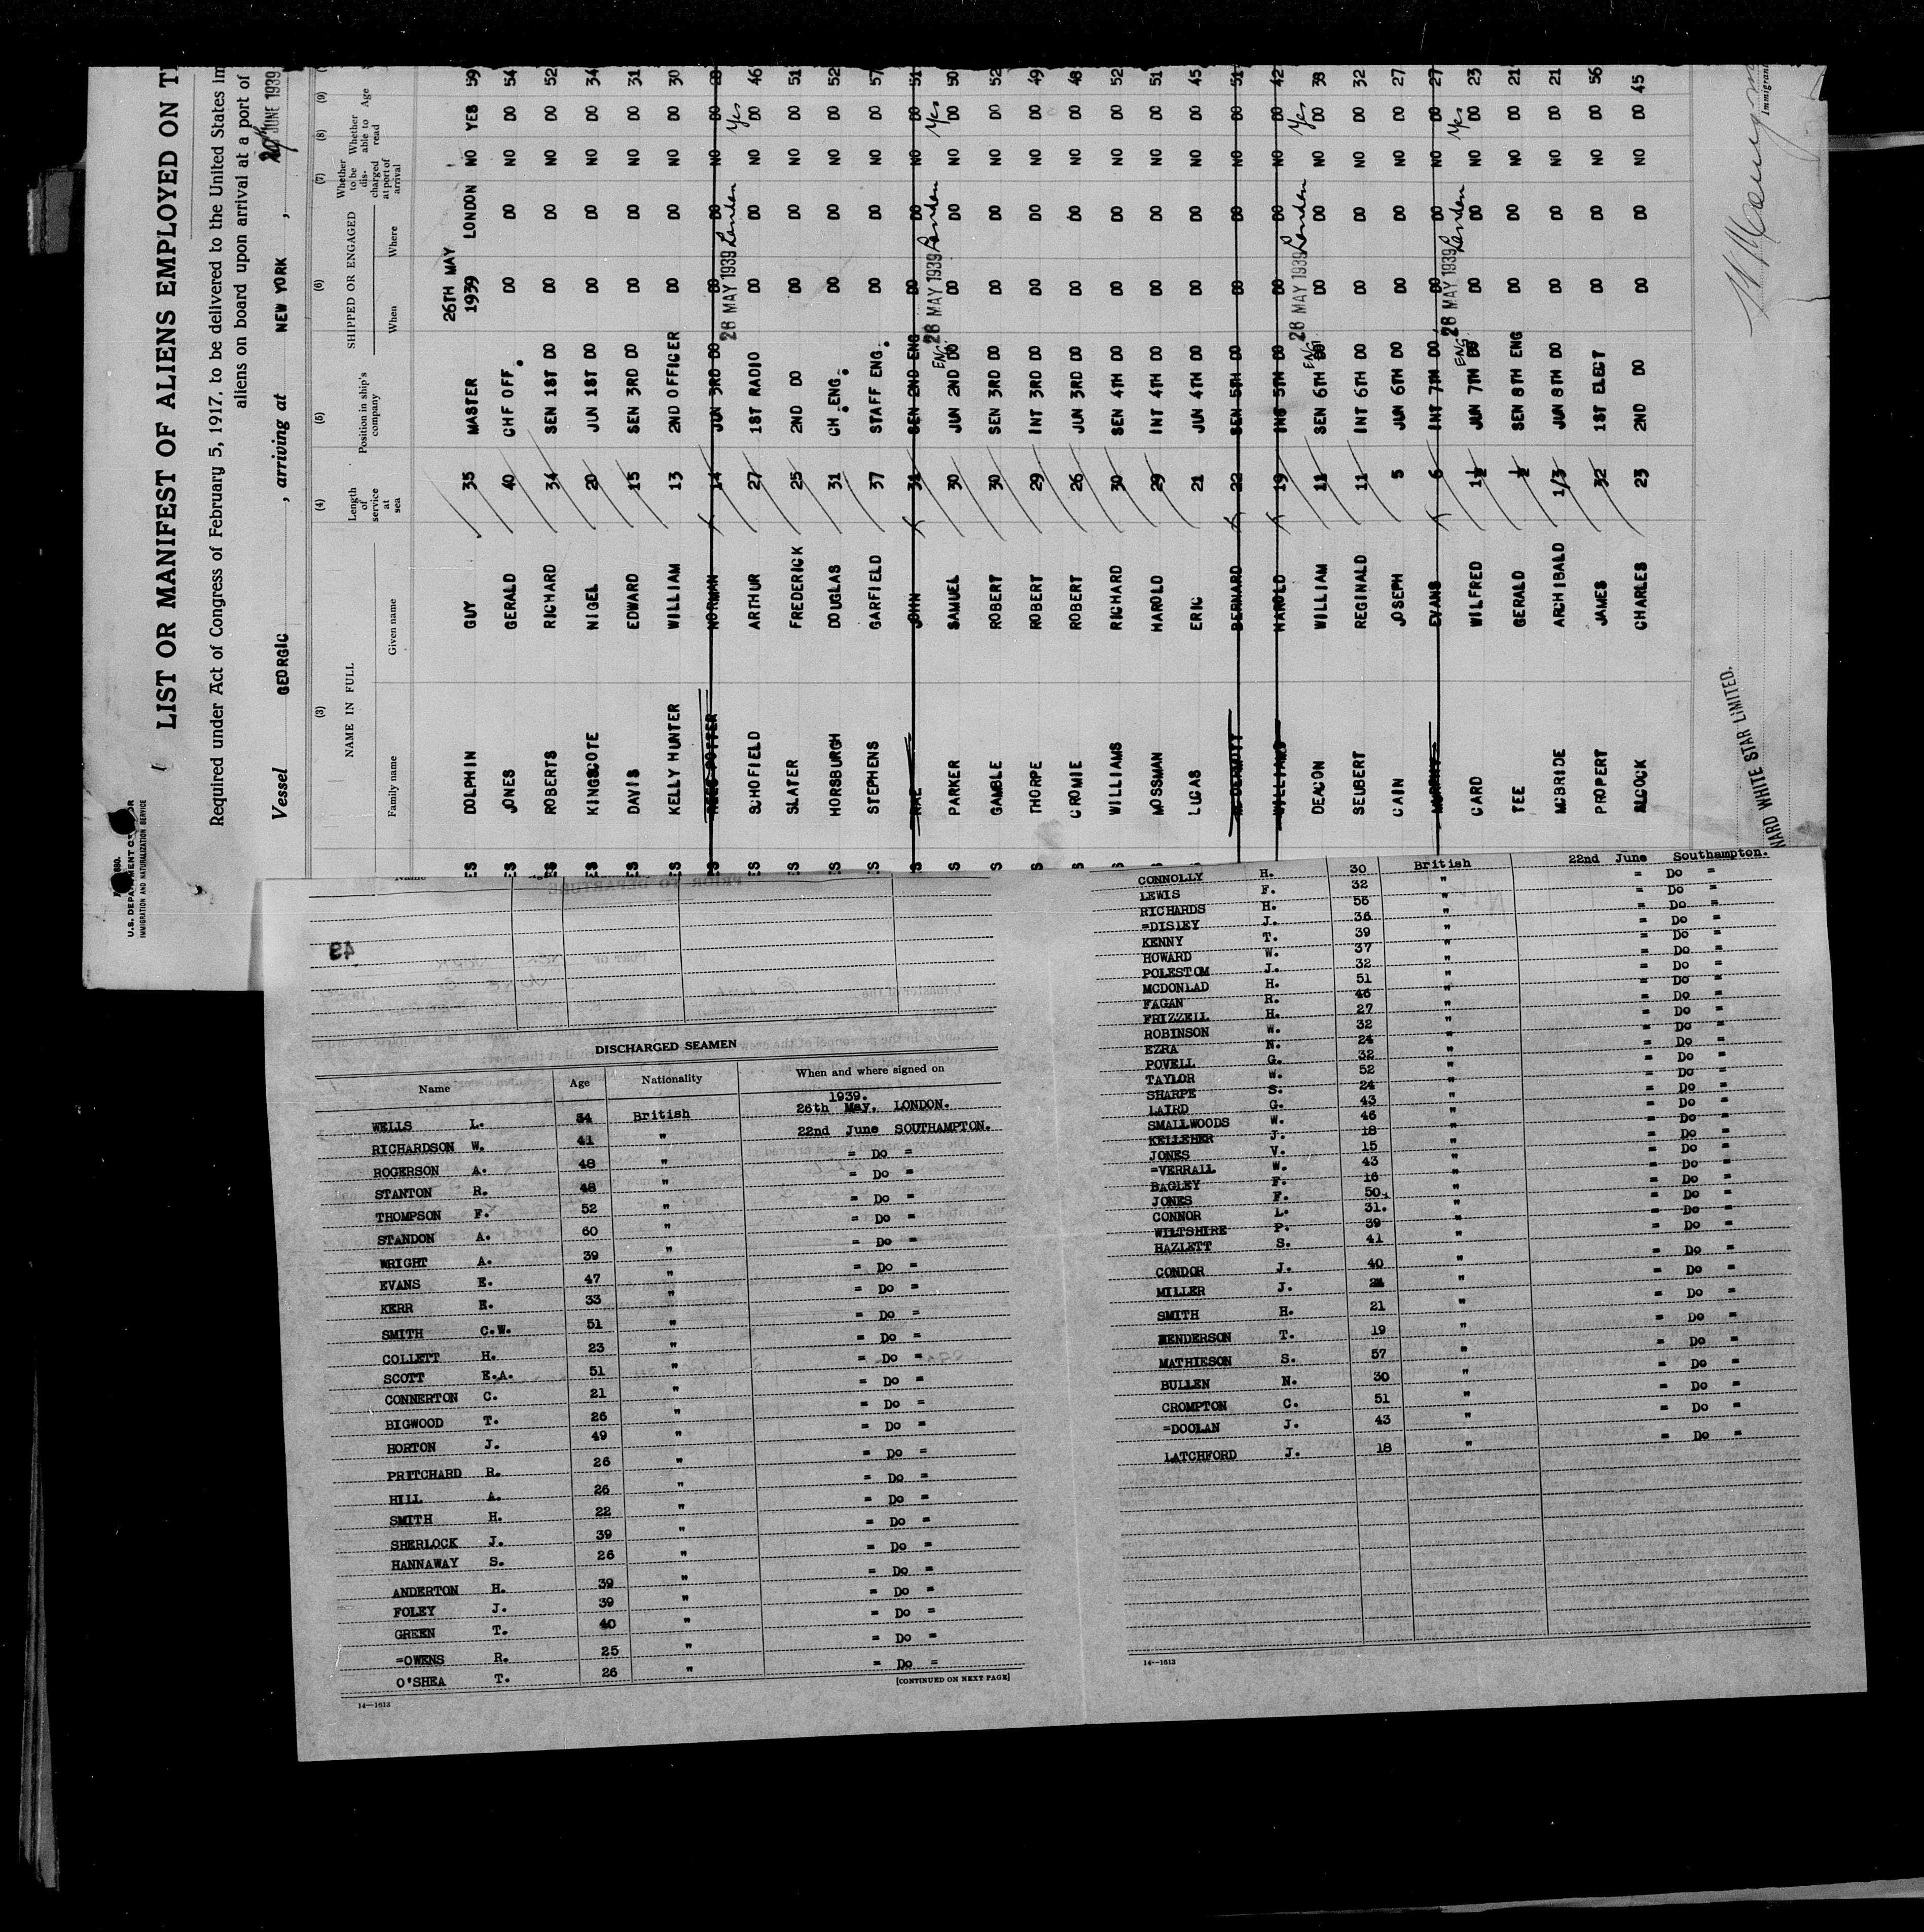 LIST OR MANIFEST OF ALIENS EMPLOYED ON
Required under Act of Congress of February 5, 1917, to be delivered to the United States
aliens on board upon arrival at a port of
Vessel GEORGIC , arriving at NEW YORK , JUNE 1939
U.S. DEPARTMENT
IMMIGRATION AND NATURALIZATION SERVICE
(3) (4) (5) (6) (7) (8) (9)
NAME IN FULL
Family name Given name
Length of service at sea
Position in ship's company
SHIPPED OR ENGAGED
When Where
Whether to be discharged at port of arrival
Whether able to read
Age
26TH MAY
ES DOLPHIN GUY 35 MASTER 1939 LONDON NO YES 59
ES JONES GERALD 40 CHF OFF. DO DO NO DO 54
ES ROBERTS RICHARD 34 SEN 1ST DO DO DO NO DO 52
ES KINGSCOTE NIGEL 20 JUN 1ST DO DO DO NO DO 34
ES DAVIS EDWARD 15 SEN 3RD DO DO DO NO DO 31
ES KELLY HUNTER WILLIAM 13 2ND OFFICER DO DO NO DO 30
ES REES POTTER NORMAN 14 JUN 3RD DO DO DO NO DO 28
28 MAY 1939 London Yes
ES SCHOFIELD ARTHUR 27 1ST RADIO DO DO NO DO 46
ES SLATER FREDERICK 25 2ND DO DO DO NO DO 51
ES HORSBURGH DOUGLAS 31 CH.ENG. DO DO NO DO 52
ES STEPHENS GARFIELD 37 STAFF ENG. DO DO NO DO 57
S RAE JOHN 31 SEN 2ND ENG DO DO NO DO 51
28 MAY 1939 London Yes
S PARKER SAMUEL 30 JUN 2ND DO ENG DO DO NO DO 50
S GAMBLE ROBERT 30 SEN 3RD DO DO DO NO DO 52
S THORPE ROBERT 29 INT 3RD DO DO DO NO DO 49
S CROMIE ROBERT 26 JUN 3RD DO DO DO NO DO 48
S WILLIAMS RICHARD 30 SEN 4TH DO DO DO NO DO 52
S MOSSMAN HAROLD 29 INT 4TH DO DO DO NO DO 51
S LUCAS ERIC 21 JUN 4TH DO DO DO NO DO 45
MCDERMOTT BERNARD 22 SEN 5TH DO DO DO NO DO 51
WILLIAMS HAROLD 19 ING 5TH DO DO DO NO DO 42
28 MAY 1939 London Yes
DEACON WILLIAM 11 SEN 6TH DO ENG DO DO NO DO 38
SEUBERT REGINALD 11 INT 6TH DO DO DO NO DO 32
CAIN JOSEPH 5 JUN 6TH DO DO DO NO DO 27
MURPHY EVANS 6 INT 7TH DO DO DO NO DO 27
28 MAY 1939 London Yes
CARD WILFRED 1½ JUN 7TH DO ENG DO DO NO DO 23
TEE GERALD ½ SEN 8TH ENG DO DO NO DO 21
MCBRIDE ARCHIBALD 1/3 JUN 8TH DO DO DO NO DO 21
PROPERT JAMES 32 1ST ELECT DO DO NO DO 56
ALCOCK CHARLES 23 2ND DO DO DO NO DO 45
NARD WHITE STAR LIMITED.
Immigran
DISCHARGED SEAMEN
Name Age Nationality When and where signed on
1939.
WELLS L. 34 British 26th May. LONDON.
RICHARDSON W. 41 " 22nd June SOUTHAMPTON.
ROGERSON A. 48 " = Do =
STANTON R. 48 " = Do =
THOMPSON F. 52 " = Do =
STANDON A. 60 " = Do =
WRIGHT A. 39 " = Do =
EVANS E. 47 " = Do =
KERR E. 33 " = Do =
SMITH C.W. 51 " = Do =
COLLETT H. 23 " = Do =
SCOTT E.A. 51 " = Do =
CONNERTON C. 21 " = Do =
BIGWOOD T. 26 " = Do =
HORTON J. 49 " = Do
PRITCHARD R. 26 " = Do =
HILL A. 26 " = Do =
SMITH H. 22 " = Do =
SHERLOCK J. 39 " = Do =
HANNAWAY S. 26 " = Do =
ANDERTON H. 39 " = Do =
FOLEY J. 39 " = Do =
GREEN T. 40 " = Do =
=OWENS R. 25 " = Do =
O'SHEA T. 26 " = Do =
[CONTINUED ON NEXT PAGE]
14—1613
CONNOLLY H. 30 British 22nd June Southampton.
LEWIS F. 32 " = Do =
RICHARDS H. 56 " = Do =
=DISLEY J. 36 " = Do =
KENNY T. 39 " = Do =
HOWARD W. 37 " = Do =
POLESTOM J. 32 " = Do =
MCDONLAD H. 51 " = Do =
FAGAN R. 46 " = Do =
FRIZZELL H. 27 " = Do =
ROBINSON W. 32 " = Do =
EZRA N. 24 " = Do =
POVELL G. 32 " = Do =
TAYLOR W. 52 " = Do =
SHARPE S. 24 " = Do =
LAIRD G. 43 " = Do =
SMALLWOODS W. 46 " = Do =
KELLEHER J. 18 " = Do =
JONES V. 15 " = Do =
=VERRALL W. 43 " = Do =
BAGLEY F. 16 " = Do =
JONES F. 50. " = Do =
CONNOR L. 31. " = Do =
WILTSHIRE P. 39 " = Do =
HAZLETT S. 41 " = Do =
CONDOR J. 40 " = Do =
MILLER J. 24 " = Do =
SMITH H. 21 " = Do =
HENDERSON T. 19 " = Do =
MATHIESON S. 57 " = Do =
BULLEN N. 30 " = Do =
CROMPTON C. 51 " = Do =
=DOOLAN J. 43 " = Do =
LATCHFORD J. 18 " = Do =
14—1613